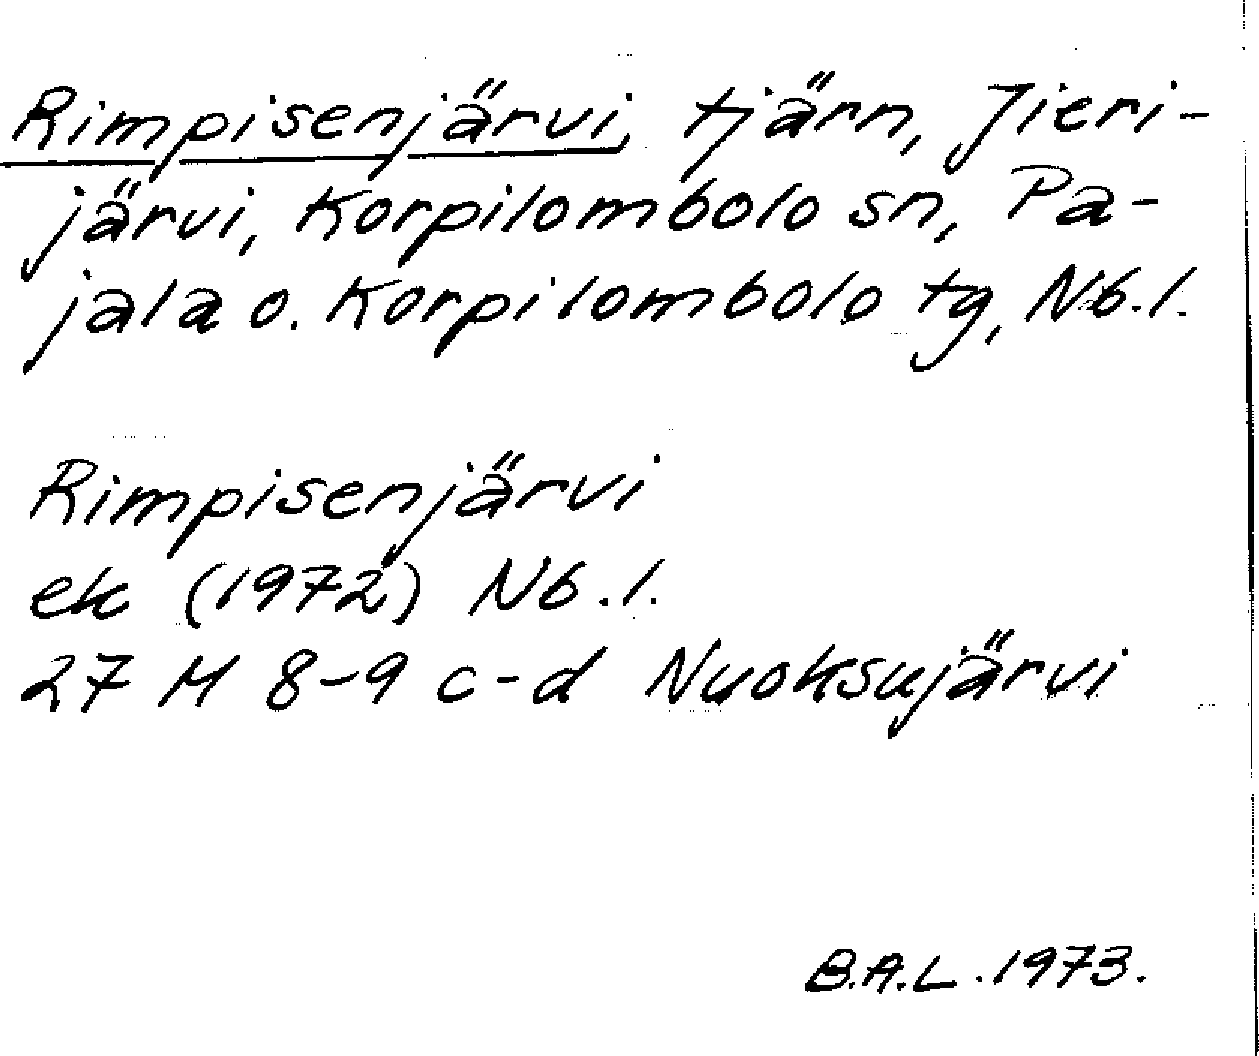 Rimpisenjärvi, tjärn, Jieri-
järvi, Korpilombolo sn, Pa-
jala o. Korpilombolo tg, Nb.l.
Rimpisenjärvi
ek (1972) Nb.l.
27 M 8-9 c-d Nuoksujärvi
B.A.L. 1973.